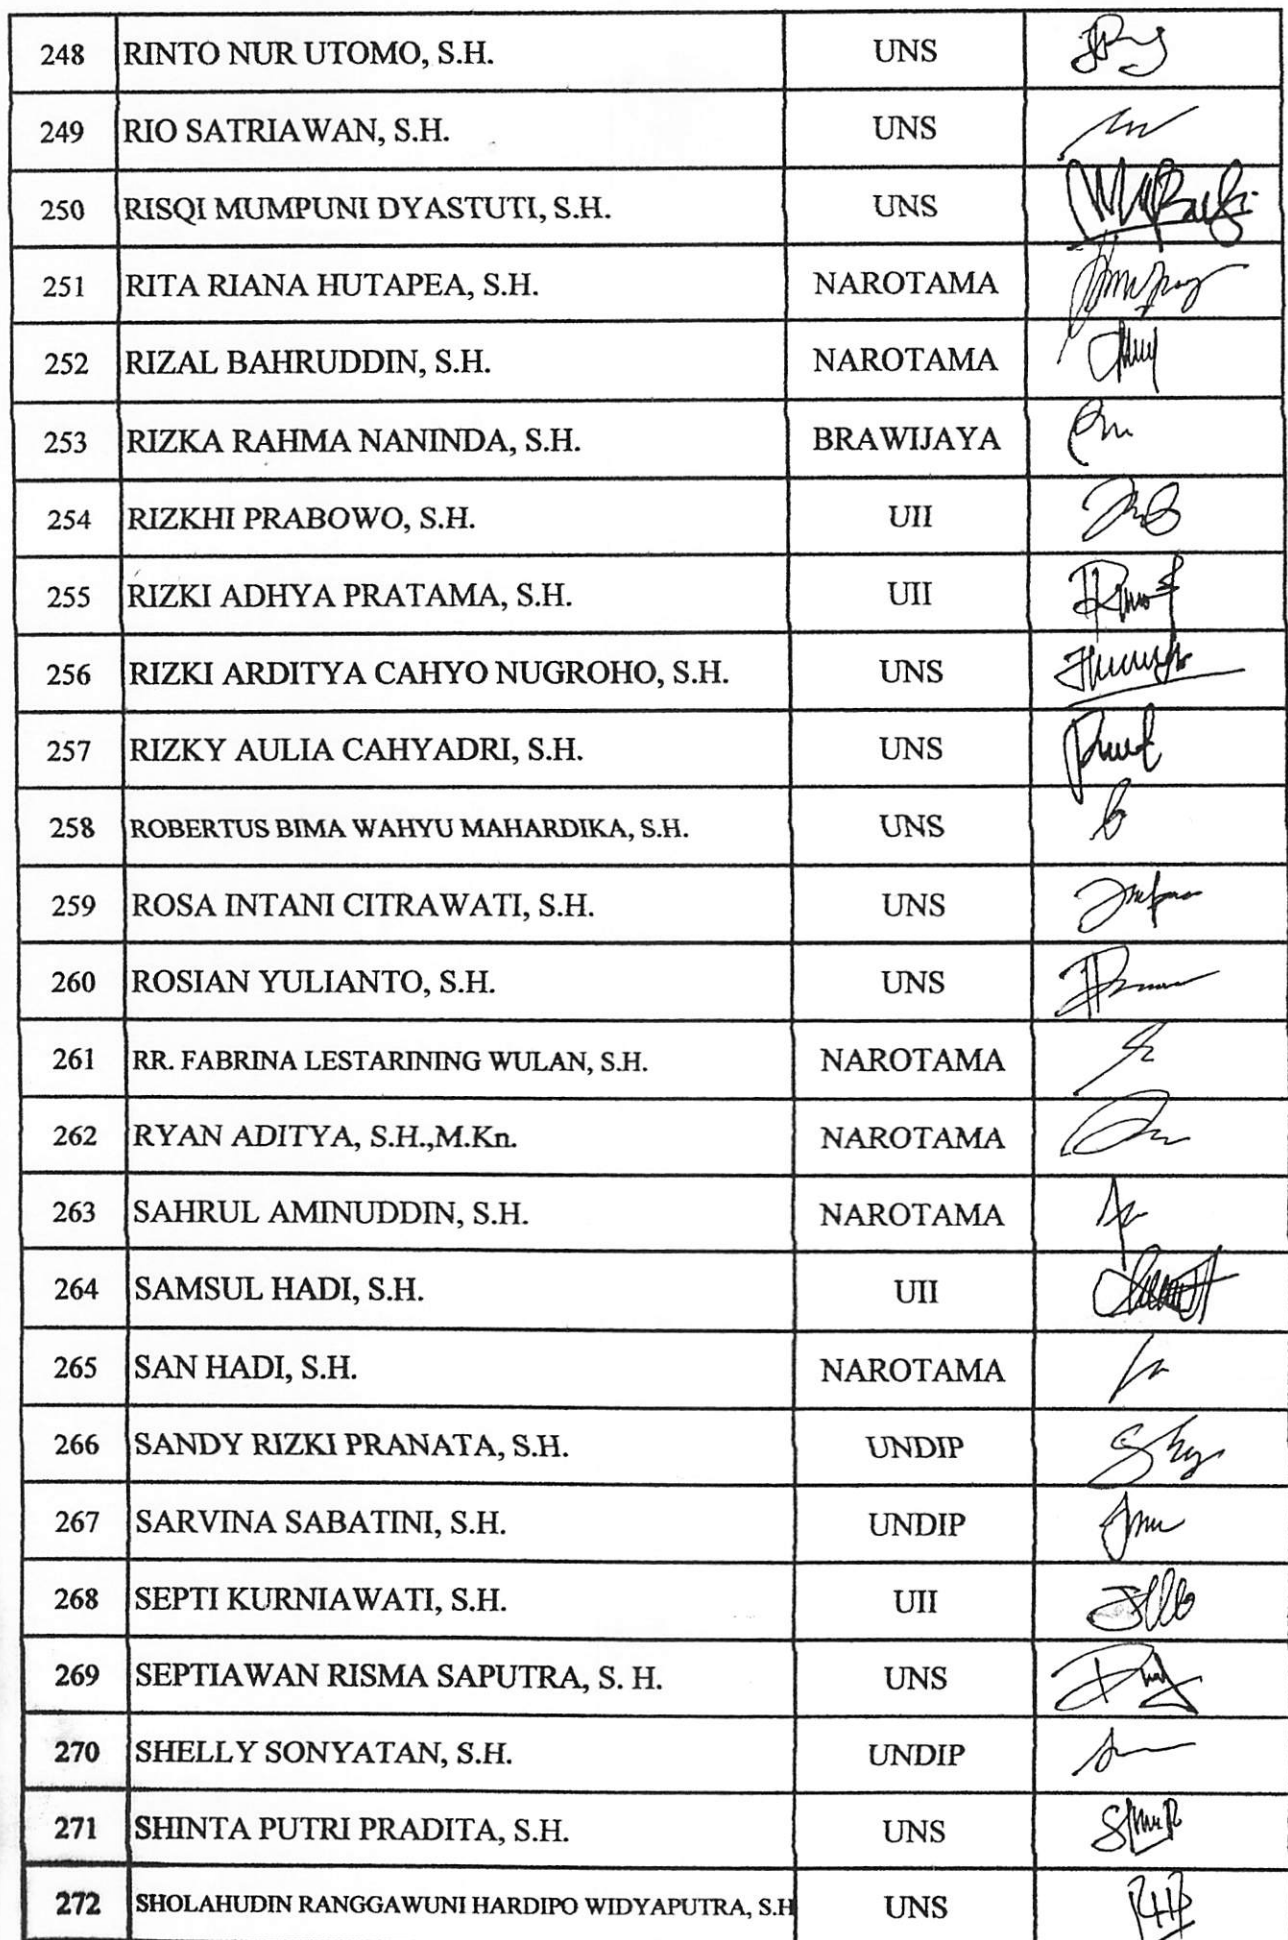 248 RINTO NUR UTOMO, S.H. UNS
249 RIO SATRIAWAN, S.H. UNS
250 RISQI MUMPUNI DYASTUTI, S.H. UNS
251 RITA RIANA HUTAPEA, S.H. NAROTAMA
252 RIZAL BAHRUDDIN, S.H. NAROTAMA
253 RIZKA RAHMA NANINDA, S.H. BRAWIJAYA
254 RIZKHI PRABOWO, S.H. UII
255 RIZKI ADHYA PRATAMA, S.H. UII
256 RIZKI ARDITYA CAHYO NUGROHO, S.H. UNS
257 RIZKY AULIA CAHYADRI, S.H. UNS
258 ROBERTUS BIMA WAHYU MAHARDIKA, S.H. UNS
259 ROSA INTANI CITRAWATI, S.H. UNS
260 ROSIAN YULIANTO, S.H. UNS
261 RR. FABRINA LESTARINING WULAN, S.H. NAROTAMA
262 RYAN ADITYA, S.H.,M.Kn. NAROTAMA
263 SAHRUL AMINUDDIN, S.H. NAROTAMA
264 SAMSUL HADI, S.H. UII
265 SAN HADI, S.H. NAROTAMA
266 SANDY RIZKI PRANATA, S.H. UNDIP
267 SARVINA SABATINI, S.H. UNDIP
268 SEPTI KURNIAWATI, S.H. UII
269 SEPTIAWAN RISMA SAPUTRA, S. H. UNS
270 SHELLY SONYATAN, S.H. UNDIP
271 SHINTA PUTRI PRADITA, S.H. UNS
272 SHOLAHUDIN RANGGAWUNI HARDIPO WIDYAPUTRA, S.H UNS